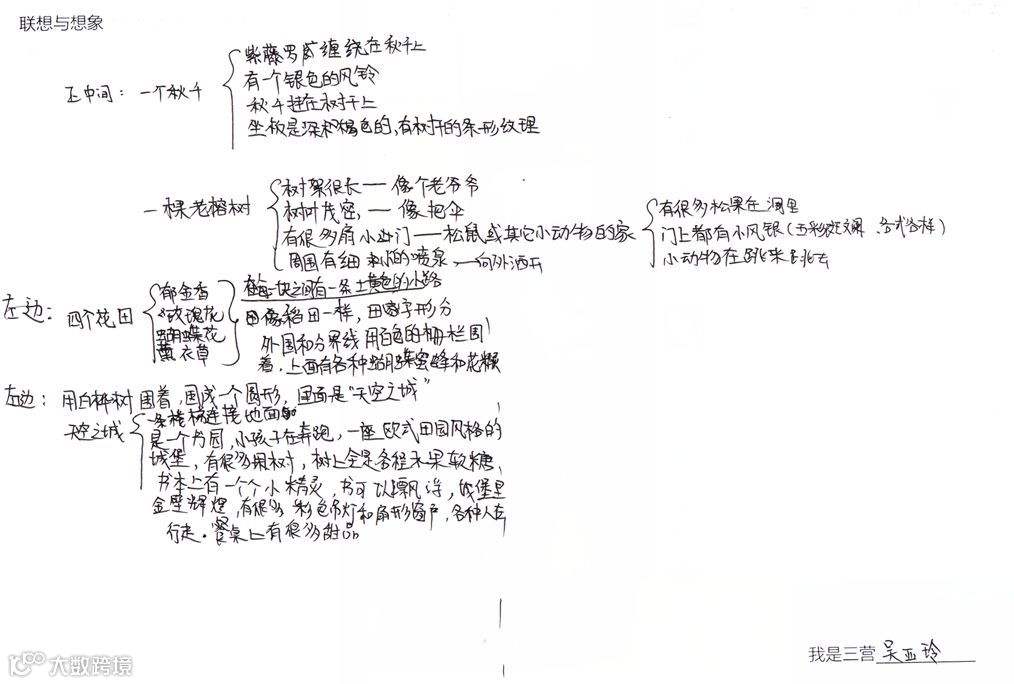 联想与想象
正中间：一个秋千
紫藤罗蔓缠绕在秋千上
有一个银色的风铃
秋千挂在树干上
坐板是深褐色的，有树干的条形纹理
一棵老榕树
树很长——像个老爷爷
树叶茂密，——像把伞
有很多扇小门——松鼠或其它小动物的家
周围有细的喷泉，——向外洒开
有很多松果在洞里
门上都有小风银（五彩斑斓、各式各样）
小动物在跳来跳去
左边：四个花田
郁金香
玫瑰花
蝴蝶花
薰衣草
每一块之间有一条土黄色的小路
田像稻田一样，田字形分
外围和分界线用白色的栅栏围
着，上面有各种蝴蝶蜜蜂和花
左边：用白桦树围着，围成一个圆形，里面是“天空之城”
天空之城
一条栈桥连接地面
是一个方园，小孩子在奔跑，一座欧式田园风格的
城堡，有很多果树，树上全是各种水果软糖，
书本上有一个个小精灵，书可以漂浮，城堡里
金壁辉煌，有很多彩色吊灯和扇形窗户，各种人在
行走。餐桌上有很多甜品
我是三营 吴亚玲
大数跨境